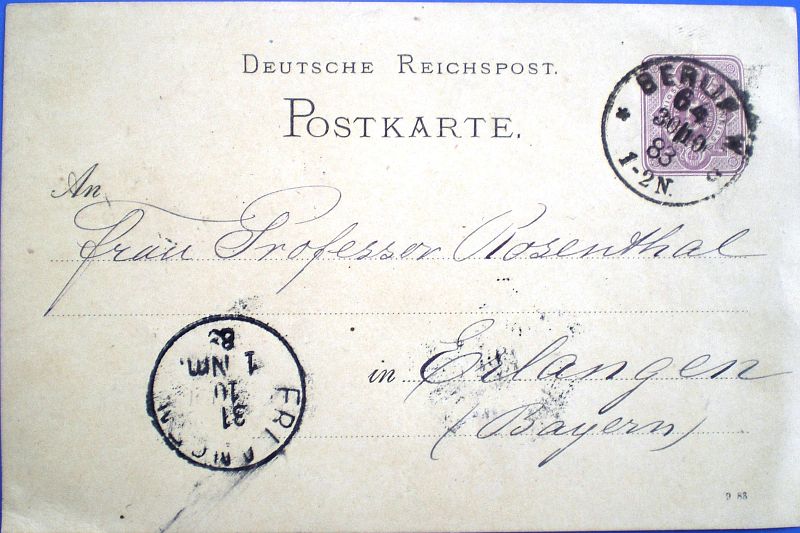 DEUTSCHE REICHSPOST.
POSTKARTE.
BERLIN W
64
30/10
83
1-2N.
An
Frau Professor Rosenthal
in Erlangen
(Bayern)
ERLANGEN
31
10
1 Nm.
83
9 83